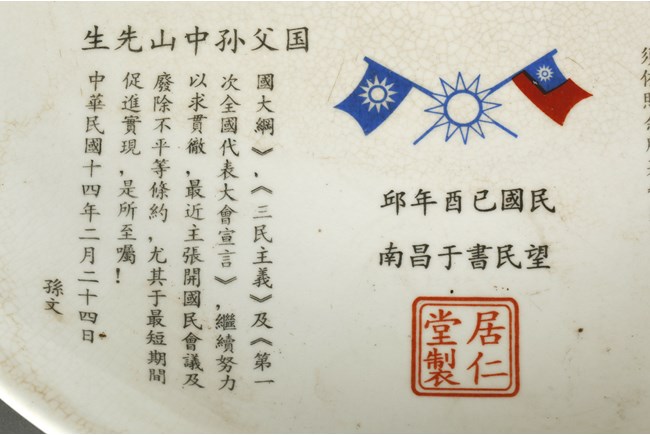 国父孙中山先生
國大綱》，《三民主義》及《第一
次全國代表大會宣言》，繼續努力
以求貫徹，最近主張開國民會議及
廢除不平等條約，尤其于最短期間
促進實現，是所至囑！
中華民國十四年二月二十四日
孫文
民國已酉年邱
望民書于昌南
居仁
堂製